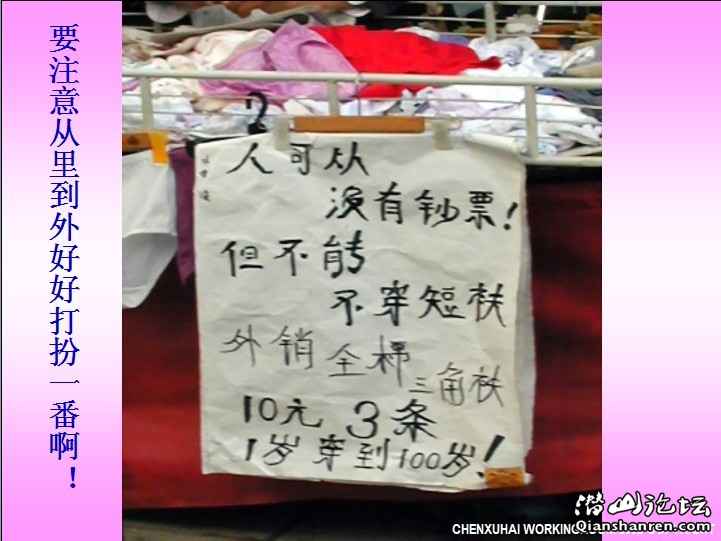 要注意从里到外好好打扮一番啊！
人可以
没有钞票！
但不能
不穿短裤
外销全棉三角裤
10元 3条
1岁穿到100岁！
潜山论坛
CHENXUHAI WORKING
Qianshanren.com